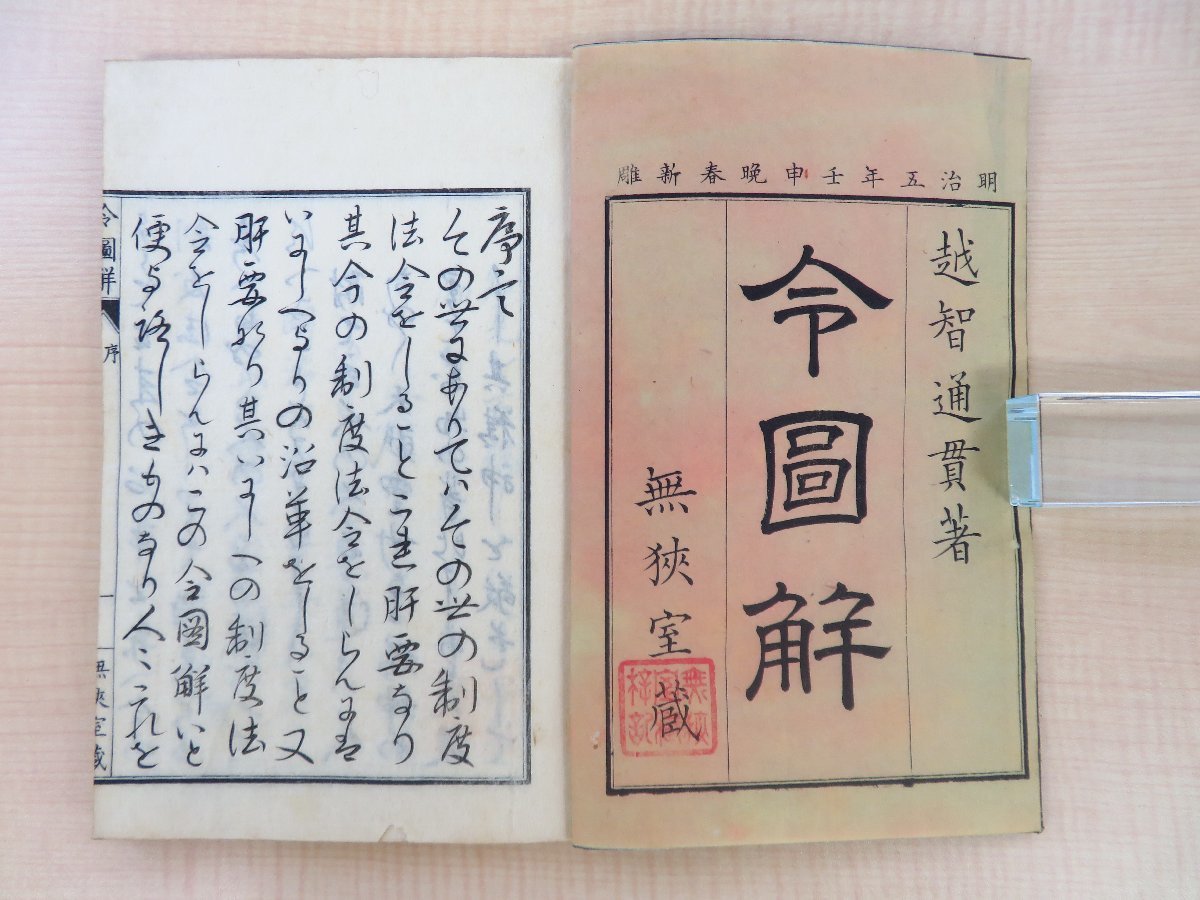 明治五年壬申晩春新雕
越智通貫著
令圖解
無狹室蔵
序言
その世にありてハその世の制度
法令をしること之れ肝要なり
其今の制度法令をしらんにハ
いにしへよりの沿革をしること又
肝要なり其いにしへの制度法
令をしらんにハこの令圖解いと
便よろしきものなり人こ
令圖解
序
一
無狹室蔵